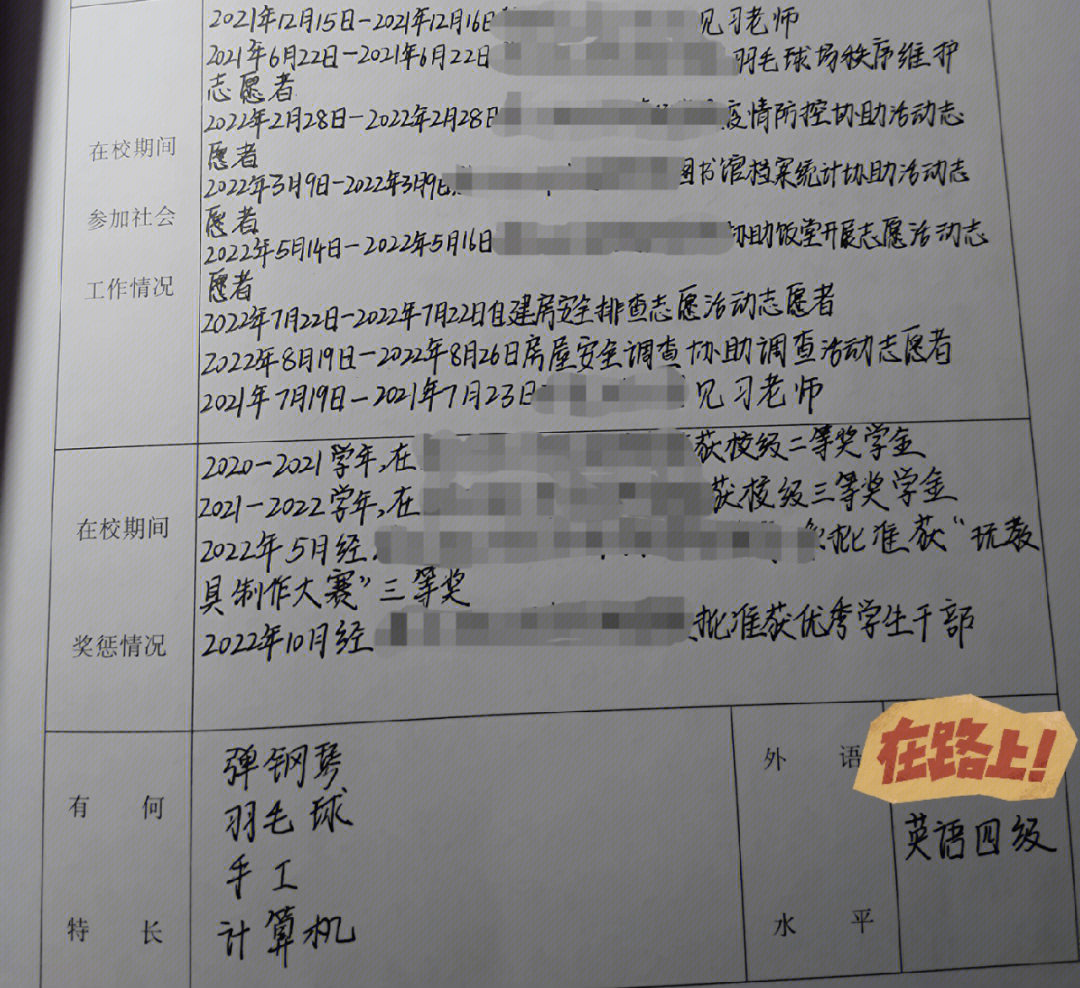 2021年12月15日-2021年12月16日 见习老师
2021年6月22日-2021年6月22日 羽毛球场秩序维护
志愿者
2022年2月28日-2022年2月28日 疫情防控协助活动志
在校期间
愿者
2022年3月9日-2022年3月9日 图书馆档案统计协助活动志
参加社会
愿者
2022年5月14日-2022年5月16日 协助饭堂开展志愿活动志
工作情况
愿者
2022年7月22日-2022年7月22日自建房安全排查志愿活动志愿者
2022年8月19日-2022年8月26日房屋安全调查协助调查活动志愿者
2021年7月19日-2021年7月23日 见习老师
2020-2021学年,在 获校级二等奖学金
2021-2022学年,在 获校级三等奖学金
在校期间
2022年5月经 批准获“玩教
具制作大赛”三等奖
奖惩情况
2022年10月经 批准获优秀学生干部
有何
特长
弹钢琴
羽毛球
手工
计算机
外语
水平
在路上!
英语四级